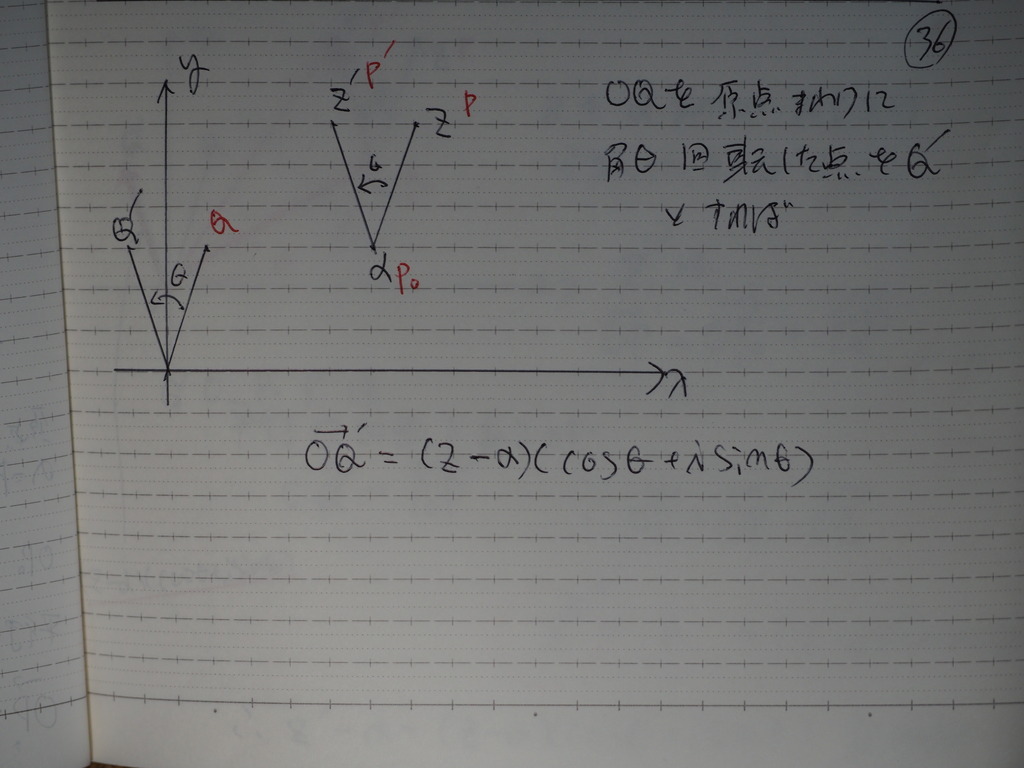 ㊱
y
z' P'
z P
OQを原点まわりに
θ
角θ回転した点をQ'
とすれば
Q'
Q
θ
α P₀
x
OQ⃗' = (z-α)(cosθ+i sinθ)